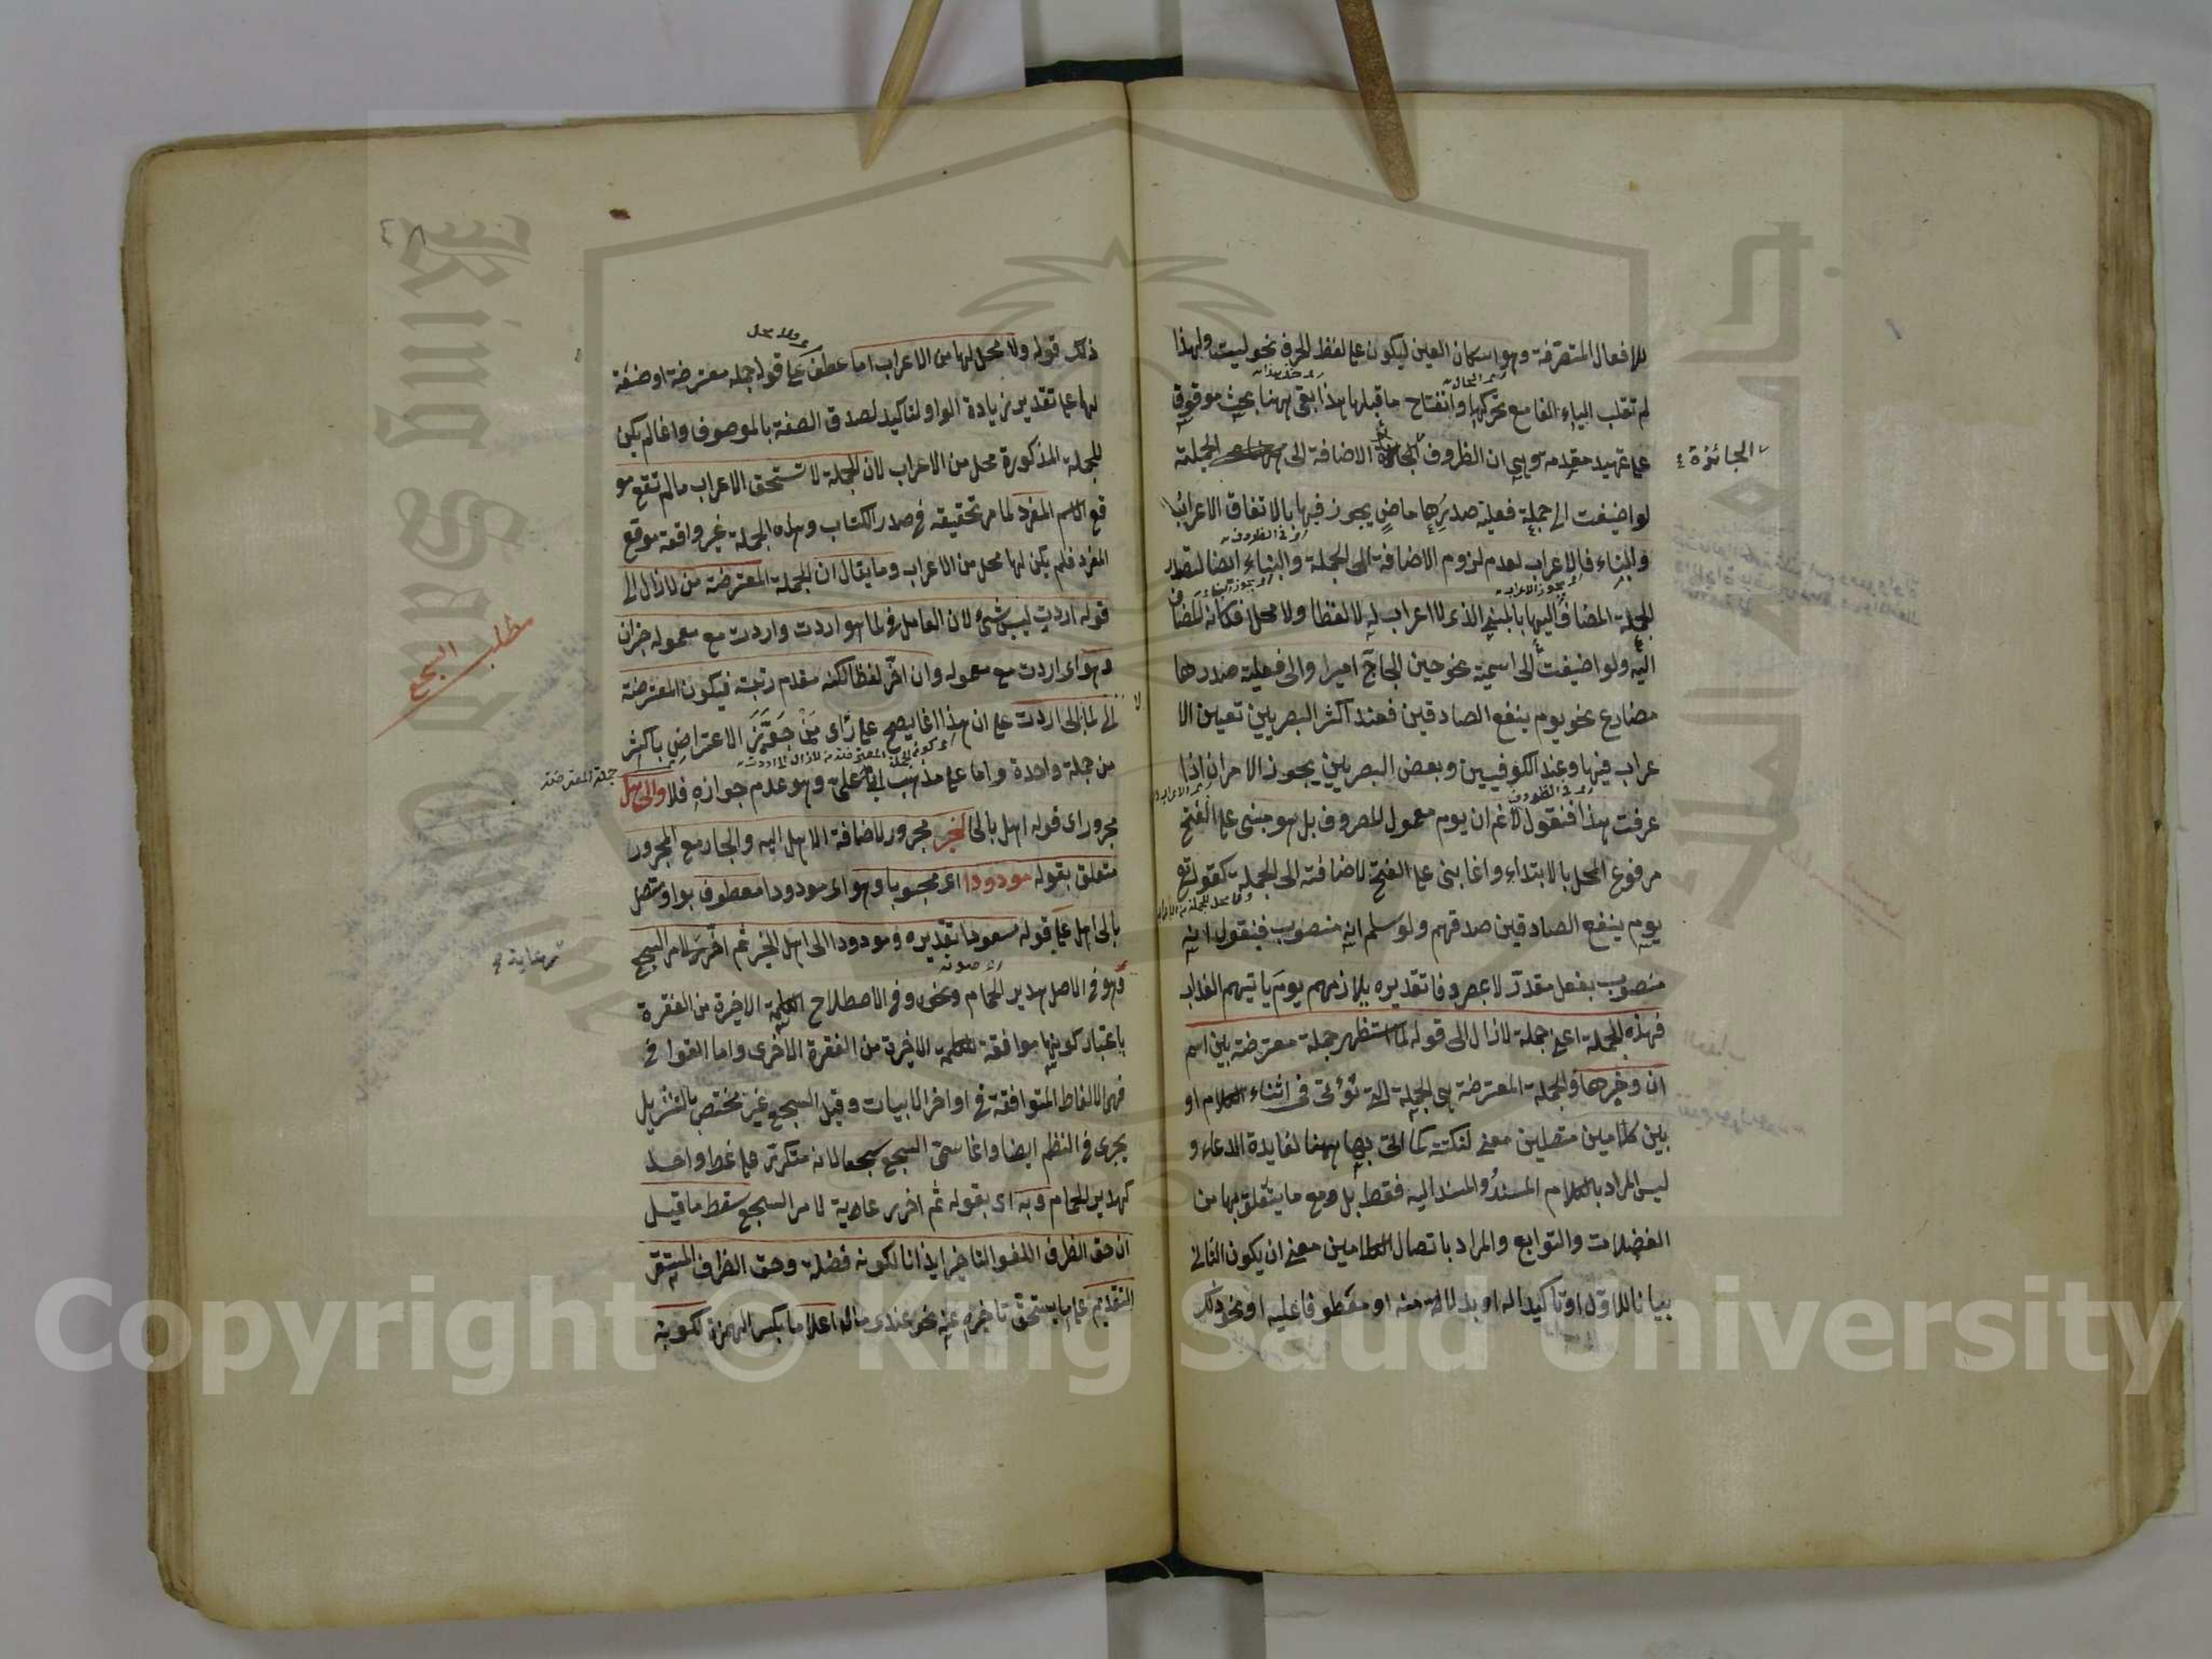 للافعال المتصرفة وهو اسكان العين ليكون على لفظ الحرف نحو ليت ولهذا
لم تقلب الياء الفا مع تحركها وانفتاح ما قبلها هذا بقي ههنا بحث موقوف
على تمهيد مقدمة وهي ان الظروف الاضافة الى الجملة
الجائزة
لو اضيفت الى جملة فعلية صدرها ماض يجوز فيها بالاتفاق الاعراب
والبناء فالاعراب لعدم لزوم الاضافة الى الجملة والبناء ايضا لتصدر
الجملة المضاف اليها بالمبني الذي لا اعراب له لا لفظا ولا محلا فكانه المضاف
اليه ولو اضيفت الى اسمية نحو حين الحاج امير او الى فعلية صدرها
مضارع نحو يوم ينفع الصادقين فعند اكثر البصريين تعين الا
عراب فيها وعند الكوفيين وبعض البصريين يجوز الامران اذا
عرفت هذا فنقول لا نم ان يوم معمول لمصروف بل هو مبني على الفتح
مرفوع المحل بالابتداء وانما بني على الفتح لاضافته الى الجملة كقوله تع
يوم ينفع الصادقين صدقهم ولو سلم انه منصوب فنقول انه
منصوب بفعل مقدر لا بمصروفا تقديره يلازمهم يوم ياتيهم العذاب
فهذه الجملة اعني جملة لازال الى قوله لما استظهر جملة معترضة بين اسم
ان وخبرها والجملة المعترضة هي الجملة التي تؤتى في اثناء الكلام او
بين كلامين متصلين معنى لنكتة كما اتى بها ههنا لفايدة الدعاء و
ليس المراد بالكلام المسند والمسند اليه فقط بل ومع ما يتعلق بها من
الفضلات والتوابع والمراد باتصال الكلامين معنى ان يكون الثاني
بيانا للاول او تاكيدا له او بدلا منه او معطوفا عليه او نحو ذلك
ذلك قوله ولا محل لها من الاعراب اما عطف على قوله جملة معترضة او صفة
لها على تقدير زيادة الواو لتاكيد لصدق الصفة بالموصوف وانما لم يكن
للجملة المذكورة محل من الاعراب لان الجملة لا تستحق الاعراب ما لم تقع مو
قع الاسم المفرد لما مر تحقيقه في صدر الكتاب وهذه الجملة غير واقعة موقع
المفرد فلم يكن لها محل من الاعراب وما يقال ان الجملة المعترضة من لازال الى
قوله اردت ليس بشئ لان العامل في لما هو اردت واردت مع معموله خبر ان
وهو اى اردت مع معموله وان اخر لفظا لكنه مقدم رتبة فيكون المعترضة
الى لما لا الى اردت على ان هذا انما يصح على راى من جوز الاعتراض باكثر
من جملة واحدة واما على مذهب ابى على وهو عدم جوازه فلا والى اهل
مجرور اى قوله اهل بالى الخير مجرور لاضافة الاهل اليه والجار مع المجرور
متعلق بقوله مودودا اى محبوبا وهو اى مودودا معطوف بواو متصل
بالى اهل على قوله مسعودا تقديره ومودودا الى اهل الخير ثم اخر سلامر السجع
وهو في الاصل هدير الحمام ونحوه وفى الاصطلاح الكلمة الاخيرة من الفقرة
باعتبار كونها موافقة للكلمة الاخيرة من الفقرة الاخرى واما القوافى
فهى الالفاظ المتوافقة في اواخر الابيات وقيل السجع غير مختص بالنثر بل
يجرى في النظم ايضا وانما سمى السجع سجعا لانه متكرر على نمط واحد
كهدير الحمام وبه اى بقوله ثم اخر رعاية لامر السجع سقط ما قيل
ان حق الظرف اللغو التاخير ايذانا لكونه فضلة وحق الظرف المستقر
التقديم على ما يستحق تاخيره عنه نحو عندى مال اعلاما بكسر الهمزة لكونه
مطلب السجع
جملة المعترضة
رعاية
Copyright © King Saud University
King Saud University